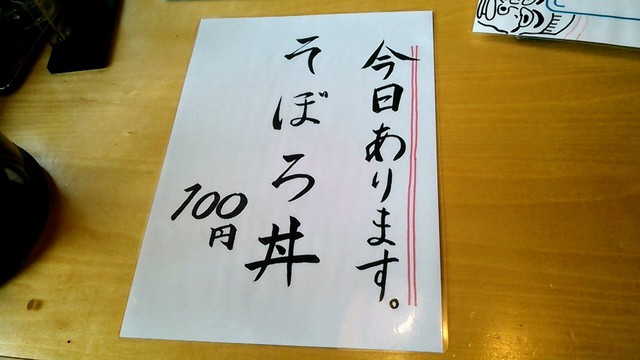 今日あります。
そぼろ丼
100円